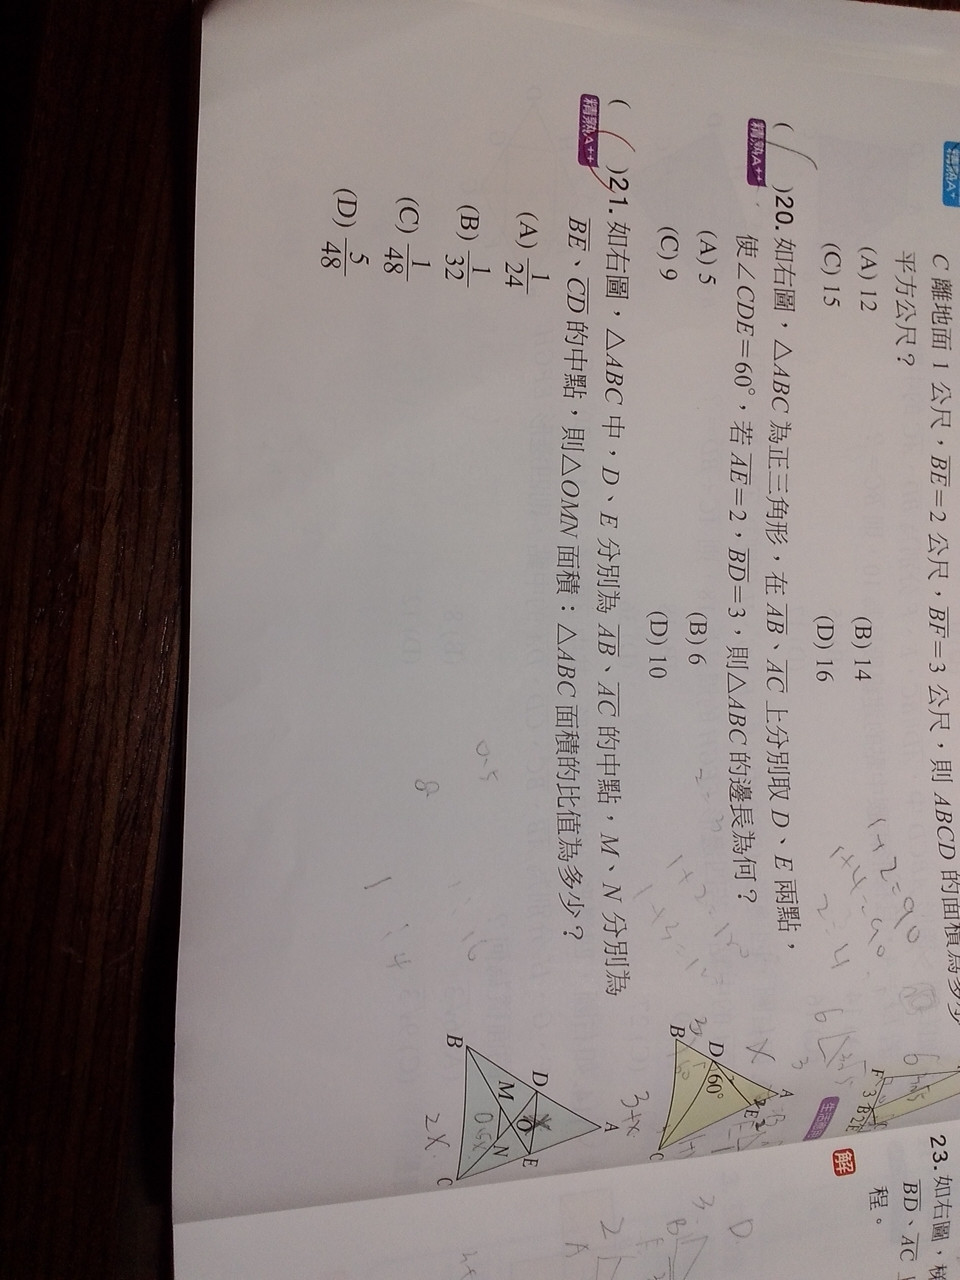 精熟A⁺
C 離地面 1 公尺，BE＝2 公尺，BF＝3 公尺，則 ABCD 的面積為多少
平方公尺？
(A) 12 (B) 14
(C) 15 (D) 16
精熟A⁺⁺
( )20. 如右圖，△ABC 為正三角形，在 AB、AC 上分別取 D、E 兩點，
使∠CDE＝60°，若 AE＝2，BD＝3，則△ABC 的邊長為何？
(A) 5 (B) 6
(C) 9 (D) 10
A
D
E
60°
B
C
精熟A⁺⁺
( )21. 如右圖，△ABC 中，D、E 分別為 AB、AC 的中點，M、N 分別為
BE、CD 的中點，則△OMN 面積：△ABC 面積的比值為多少？
(A) 1/24
(B) 1/32
(C) 1/48
(D) 5/48
A
D
E
O
M
N
B
C
1+2=90
1+4=90
2=4
3+x
2x
0.5x
23. 如右圖，梯
BD、AC
程。
解